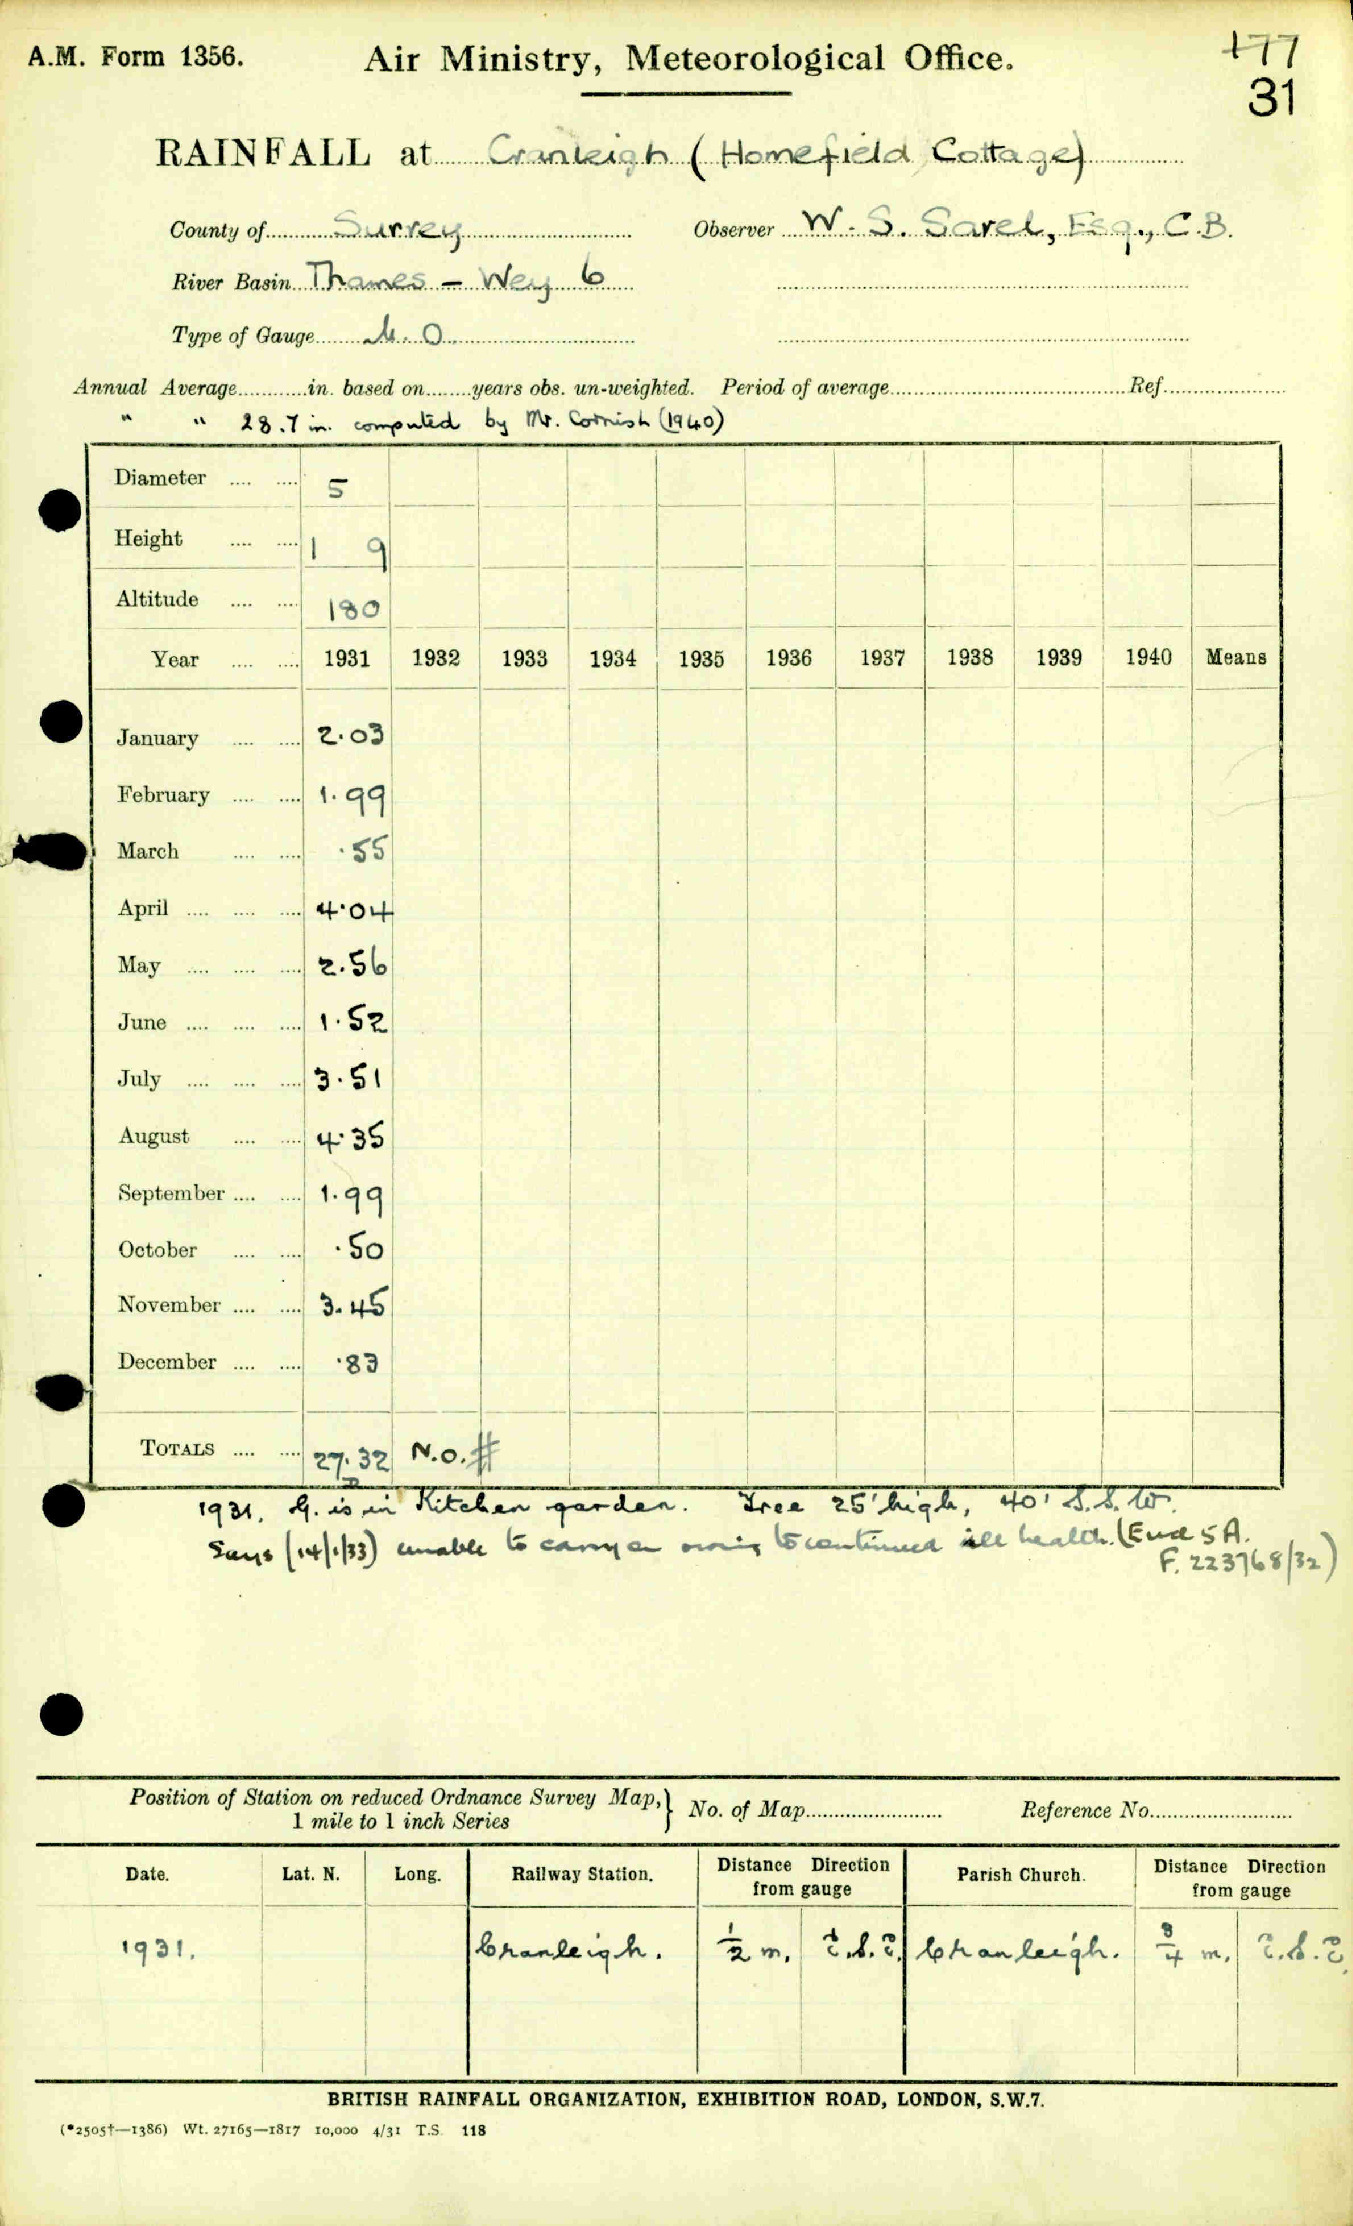 A.M. Form 1356. Air Ministry, Meteorological Office. 177
31
RAINFALL at Cranleigh (Homefield Cottage)
County of Surrey Observer W. S. Sarel, Esq., C.B.
River Basin Thames – Wey 6
Type of Gauge M.O.
Annual Average in. based on years obs. un-weighted. Period of average Ref.
" " 28.7 in. computed by Mr. Cornish (1940)
Diameter .... .... 5
Height .... .... 1 9
Altitude .... .... 180
Year .... .... 1931 1932 1933 1934 1935 1936 1937 1938 1939 1940 Means
January .... .... 2.03
February .... .... 1.99
March .... .... .55
April .... .... .... 4.04
May .... .... .... 2.56
June .... .... .... 1.52
July .... .... .... 3.51
August .... .... 4.35
September .... .... 1.99
October .... .... .50
November .... .... 3.45
December .... .... .83
TOTALS .... .... 27.32 N.O. #
1931. G. is in Kitchen garden. Tree 25' high, 40' S.S.W.
Says (14/1/33) unable to carry on owing to continued ill health. (Encl 5A.
F. 223768/32)
Position of Station on reduced Ordnance Survey Map, } No. of Map Reference No.
1 mile to 1 inch Series
Date. Lat. N. Long. Railway Station. Distance Direction from gauge Parish Church. Distance Direction from gauge
1931. Cranleigh. 1/2 m. E.S.E. Cranleigh. 3/4 m. E.S.E.
BRITISH RAINFALL ORGANIZATION, EXHIBITION ROAD, LONDON, S.W.7.
(*2505†—1386) Wt. 27165—1817 10,000 4/31 T.S. 118